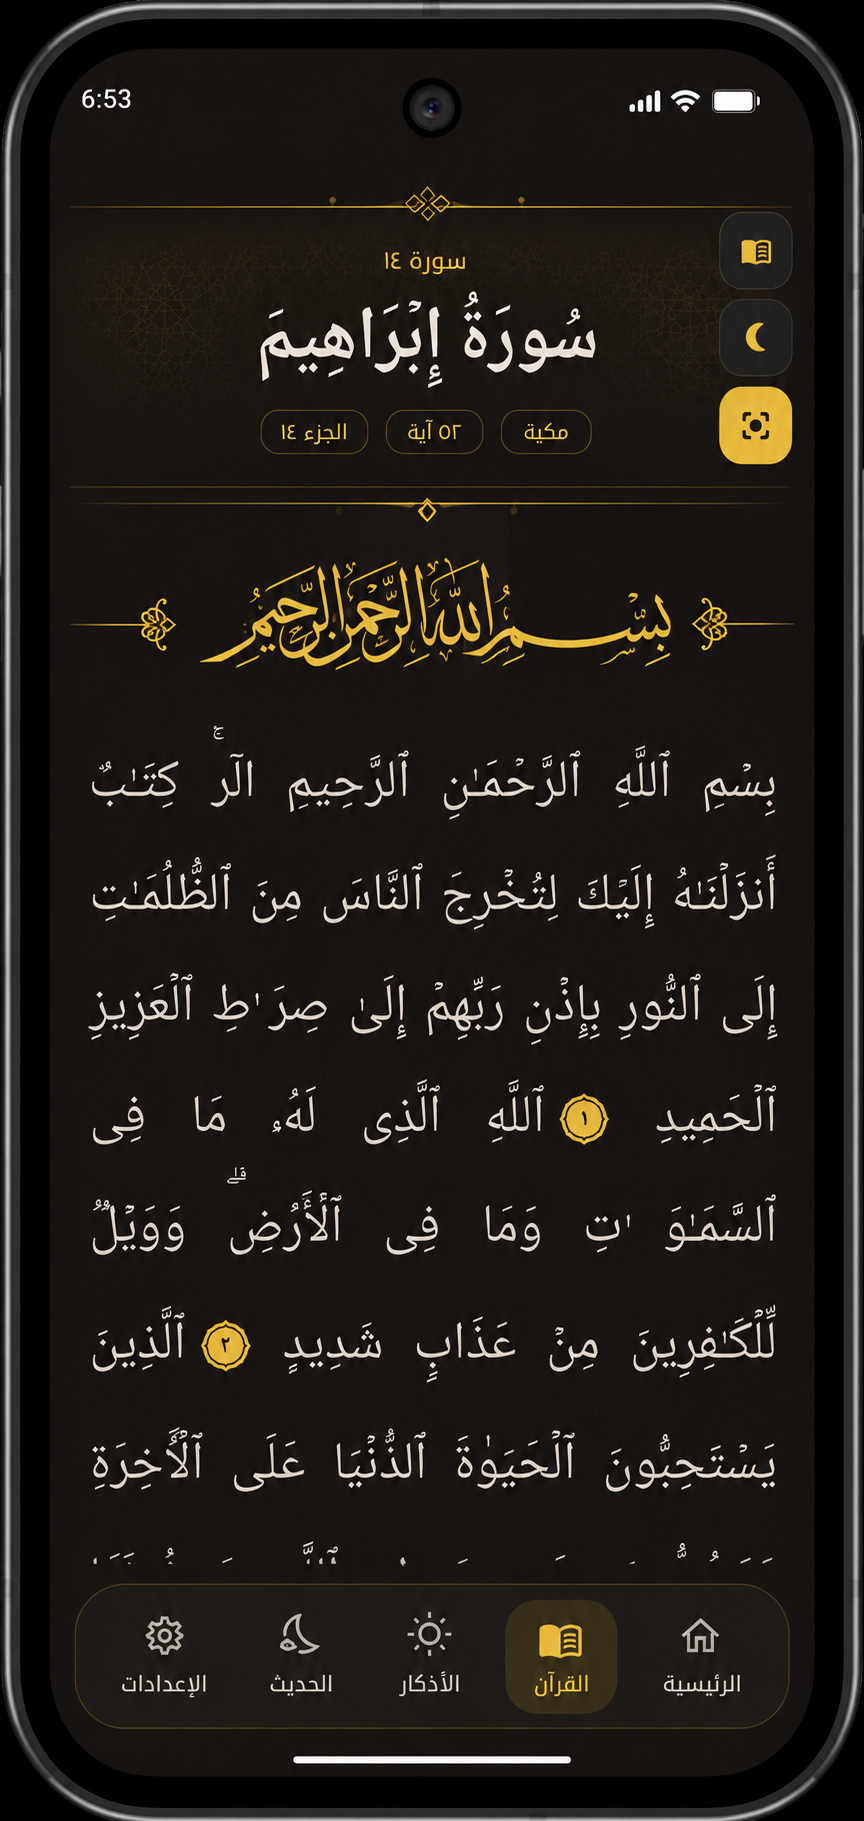 6:53
سورة ١٤
سُورَةُ إِبْرَاهِيمَ
مكية
٥٢ آية
الجزء ١٤
بِسْمِ اللَّهِ الرَّحْمَٰنِ الرَّحِيمِ
بِسْمِ ٱللَّهِ ٱلرَّحْمَـٰنِ ٱلرَّحِيمِ الٓر ۚ كِتَـٰبٌ
أَنزَلْنَـٰهُ إِلَيْكَ لِتُخْرِجَ ٱلنَّاسَ مِنَ ٱلظُّلُمَـٰتِ
إِلَى ٱلنُّورِ بِإِذْنِ رَبِّهِمْ إِلَىٰ صِرَٰطِ ٱلْعَزِيزِ
ٱلْحَمِيدِ ١ ٱللَّهِ ٱلَّذِى لَهُۥ مَا فِى
ٱلسَّمَـٰوَٰتِ وَمَا فِى ٱلْأَرْضِ ۗ وَوَيْلٌ
لِّلْكَـٰفِرِينَ مِنْ عَذَابٍ شَدِيدٍ ٢ ٱلَّذِينَ
يَسْتَحِبُّونَ ٱلْحَيَوٰةَ ٱلدُّنْيَا عَلَى ٱلْأَخِرَةِ
الرئيسية
القرآن
الأذكار
الحديث
الإعدادات